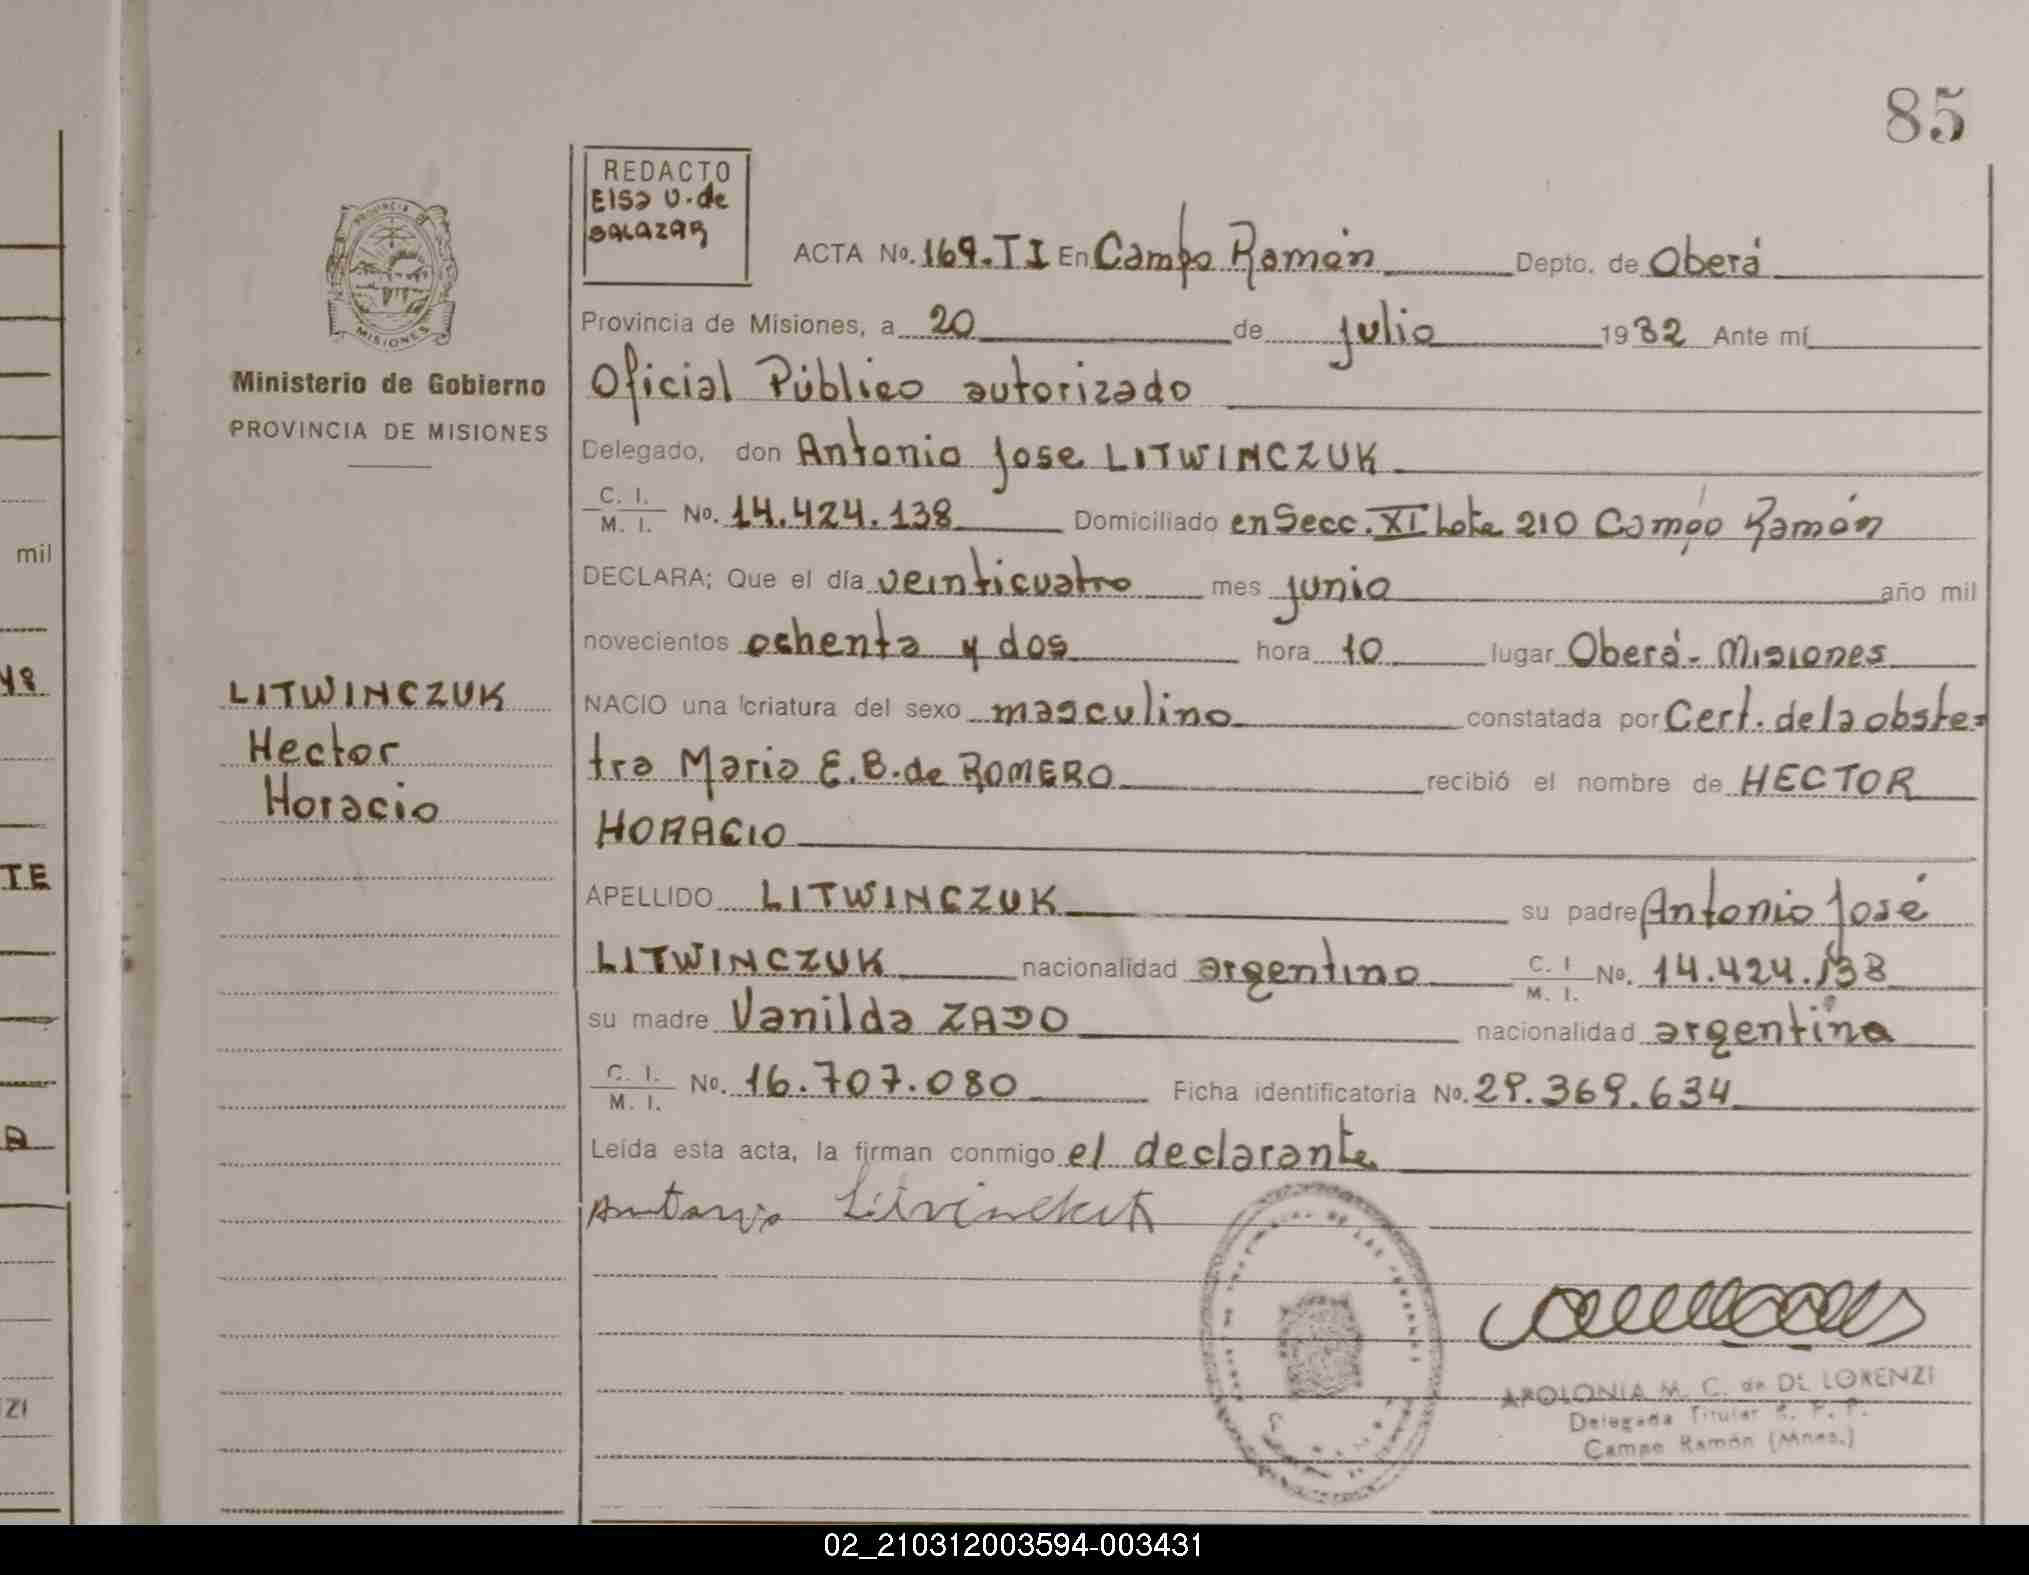 85
REDACTO
Elsa V. de
SALAZAR
ACTA No. 169. T I En Campo Ramón Depto. de Oberá
Provincia de Misiones, a 20 de julio 1982 Ante mí
Oficial Público autorizado
Delegado, don Antonio Jose LITWINCZUK
C. I. M. I. No. 14.424.138 Domiciliado en Secc. XI Lote 210 Campo Ramón
DECLARA; Que el día veinticuatro mes junio año mil
novecientos ochenta y dos hora 10 lugar Oberá - Misiones
NACIO una criatura del sexo masculino constatada por Cert. de la obste=
tra Maria E. B. de ROMERO recibió el nombre de HECTOR
HORACIO
APELLIDO LITWINCZUK su padre Antonio José
LITWINCZUK nacionalidad argentino C. I M. I. No. 14.424.138
su madre Vanilda ZADO nacionalidad argentina
C. I. M. I. No. 16.707.080 Ficha identificatoria No. 29.369.634
Leída esta acta, la firman conmigo el declarante
Antonio
APOLONIA M. C. de DE LORENZI
Delegada Titular R. P. P.
Campo Ramón (Mnes.)
PROVINCIA DE
MISIONES
Ministerio de Gobierno
PROVINCIA DE MISIONES
LITWINCZUK
Hector
Horacio
mil
48
TE
A
ZI
02_210312003594-003431